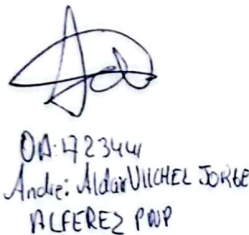 OA: 1723441
Andre: Aldair VILCHEL JORGE
ALFEREZ PNP